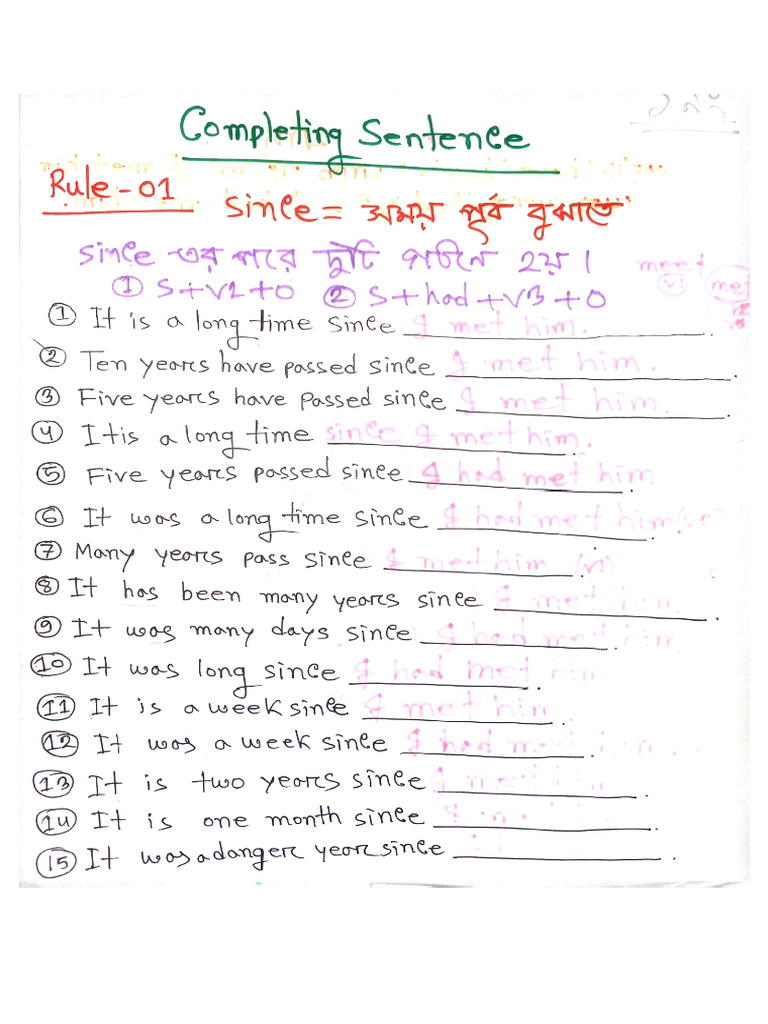 Completing Sentence
Rule-01 Since = সময় পূর্ব বুঝাতে
Since এর পরে দুটি পার্টান হয়।
① S+V2+O ② S+had+V3+O
meet
v1
met
① It is a long time since I met him.
② Ten years have passed since I met him.
③ Five years have passed since I met him.
④ It is a long time since I met him.
⑤ Five years passed since I had met him
⑥ It was a long time since I had met him
⑦ Many years pass since I met him (v1)
⑧ It has been many years since I met him.
⑨ It was many days since I had met him
⑩ It was long since I had met him
⑪ It is a week since I met him
⑫ It was a week since I had
⑬ It is two years since I met
⑭ It is one month since I
⑮ It was a danger year since